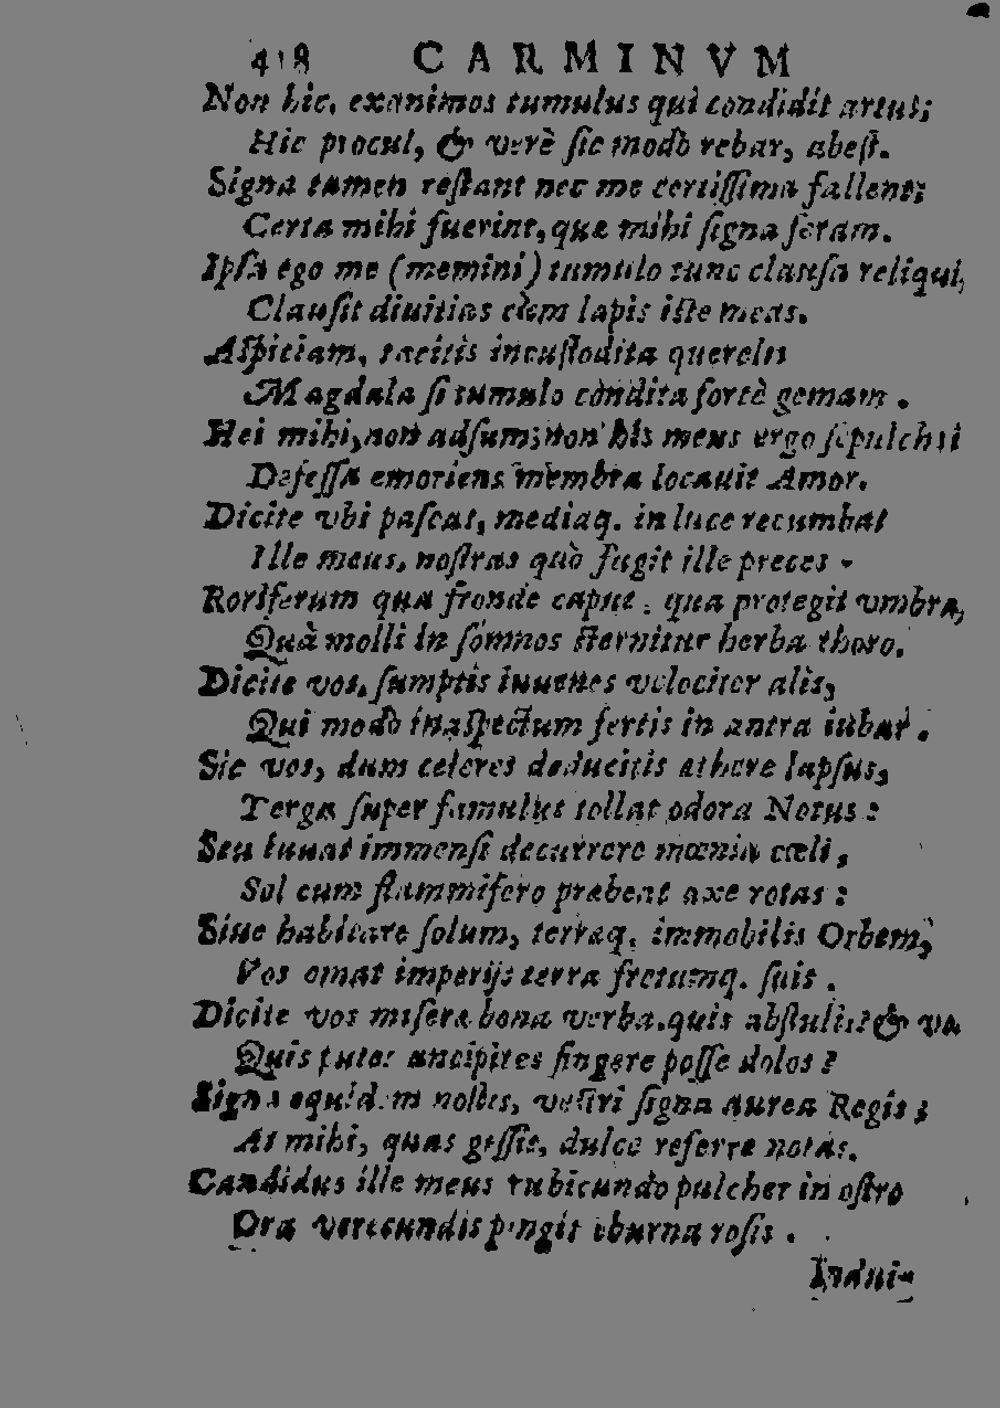 418 CARMINVM
Non hic, exanimos tumulus qui condidit artus;
Hic procul, & verè sic modò rebar, abest.
Signa tamen restant nec me certissima fallent;
Certa mihi fuerint, quæ mihi signa feram.
Ipsa ego me (memini) tumulo tunc clausa reliqui,
Clausit diuitias cùm lapis iste meas.
Aspiciam, tacitis incustodita querelis
Magdala si tumulo condita fortè gemam.
Hei mihi, non adsum; non his meus ergo sepulchri
Defessa emoriens membra locauit Amor.
Dicite vbi pascat, mediaq. in luce recumbat
Ille meus, nostras quò fugit ille preces.
Roriferum qua fronde caput: qua protegit vmbra,
Quà molli in somnos sternitur herba thoro.
Dicite vos, sumptis iuuenes velociter alis,
Qui modò inaspectum fertis in antra iubar.
Sic vos, dum celeres deducitis æthere lapsus,
Terga super famulus tollat odora Notus:
Seu iuuat immensi decurrere mœnia cœli,
Sol cum flammifero præbeat axe rotas:
Siue habitare solum, terræq. immobilis Orbem,
Vos omat imperijs terra fretumq. suis.
Dicite vos miseræ bona verba, quis abstulit? & væ
Quis putet ancipites fingere posse dolos?
Signa equidem nollis, vestri signa aurea Regis;
At mihi, quas gessit, dulce referre notas.
Candidus ille meus rubicundo pulcher in ostro
Ora verecundis pingit eburna rosis.